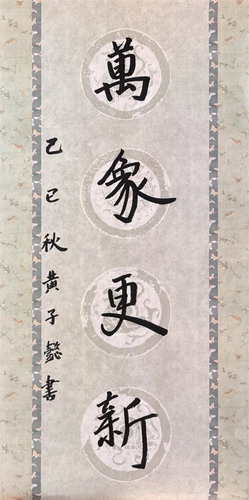 萬象更新
乙巳秋黃子懿書